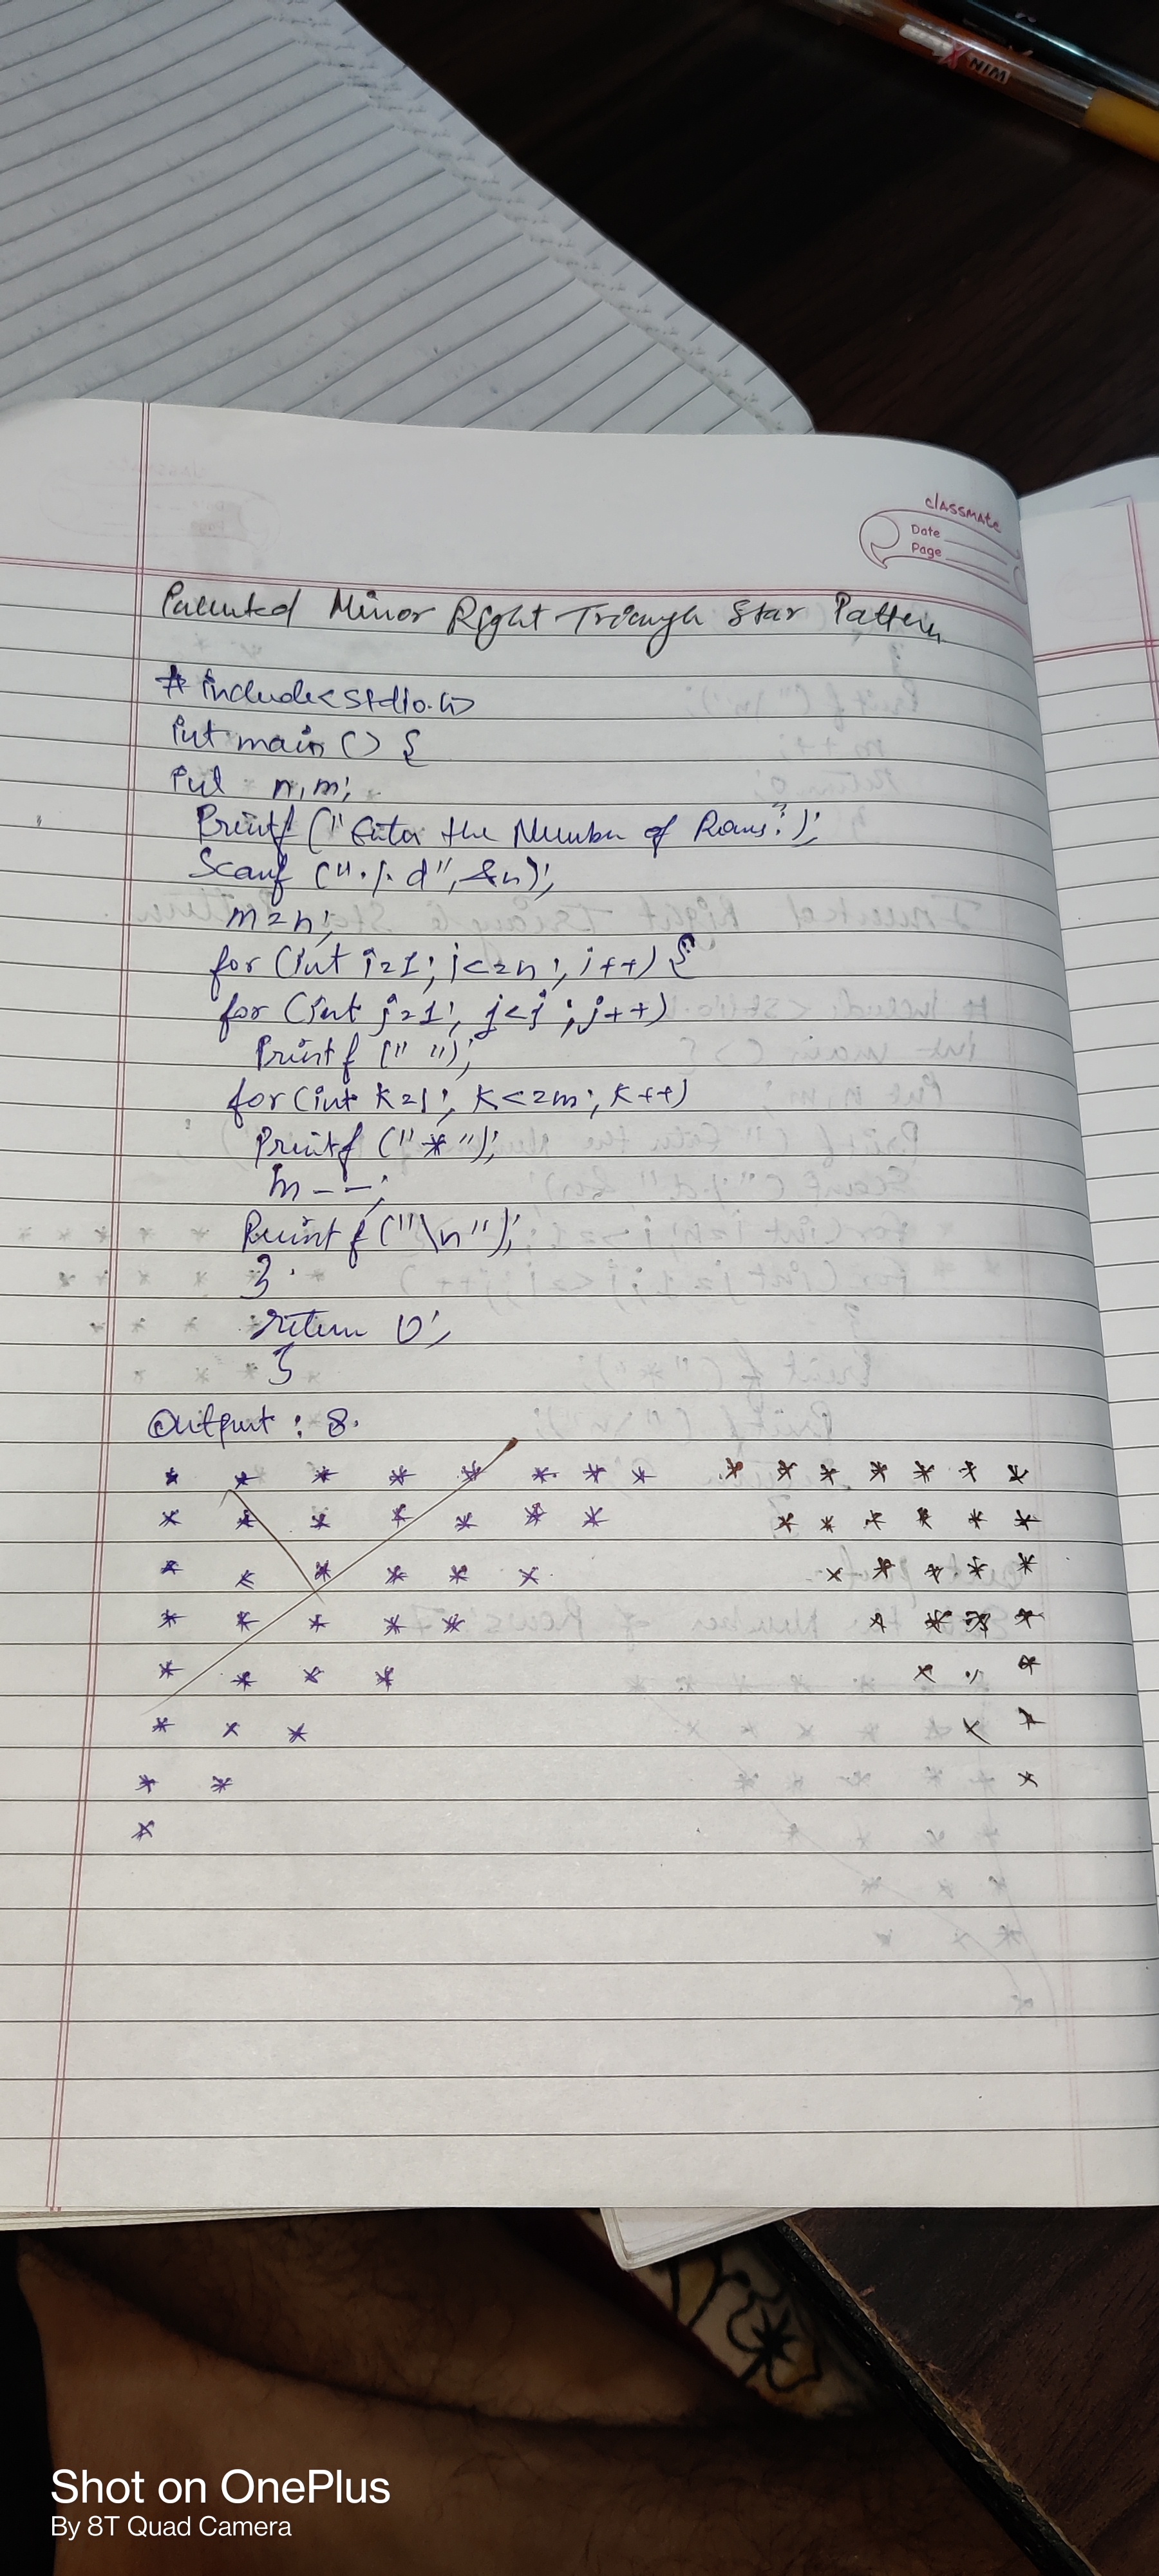 WIN
classmate
Date
Page
Minor Right Triangle Star Pattern
#include<stdio.h>
int main () {
int n,m;
Printf ("Enter the Number of Rows:");
Scanf ("%d",&n);
m=n;
for (int i=1; i<=n; i++) {
for (int j=1; j<i; j++)
Printf (" ");
for (int k=1; k<=m; k++)
Printf ("*");
m--;
Printf ("\n");
}
return 0;
}
Output : 8.
* * * * * * * * * * * * * * *
* * * * * * * * * * * * *
* * * * * * * * * * *
* * * * * * * * *
* * * * * * *
* * * * *
* * *
*
Shot on OnePlus
By 8T Quad Camera